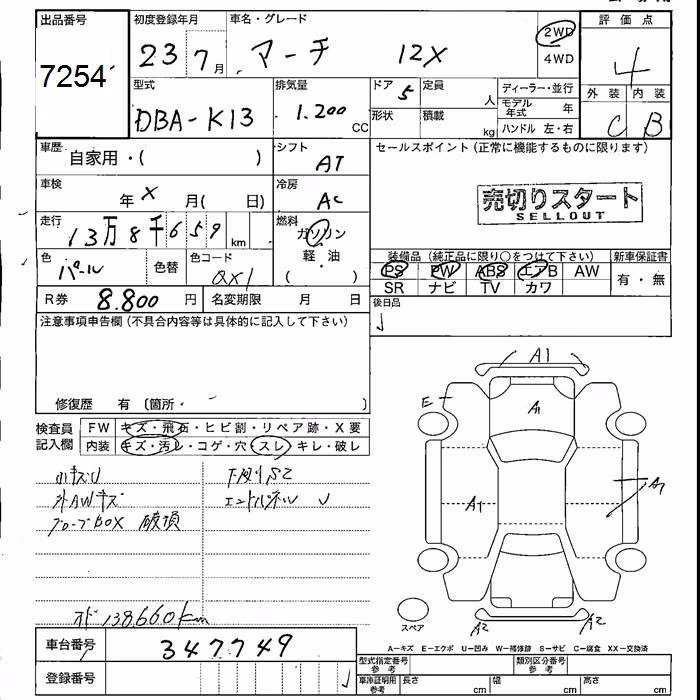 出品番号
7254
初度登録年月
23 7月
車名・グレード
マーチ 12X
2WD
4WD
評価点
4
外装 内装
C B
型式
DBA-K13
排気量
1.200 CC
ドア 5
定員 人
形状
積載 kg
ディーラー・並行
モデル年式 年
ハンドル 左・右
車歴
自家用・( )
シフト
AT
セールスポイント(正常に機能するものに限ります)
売切りスタート
SELLOUT
車検
年 X 月( 日)
冷房
AC
走行
13万8千659 km
燃料
ガソリン
軽・油
( )
色
パール
色替
色コード
QX1
装備品(純正品に限り○をつけて下さい)
PS PW ABS エアB AW
SR ナビ TV カワ
新車保証書
有・無
R券 8.800 円
名変期限 月 日
後日品
注意事項申告欄(不具合内容等は具体的に記入して下さい)
修復歴 有 〔箇所・ 〕
検査員記入欄
FW キズ・飛石・ヒビ割・リペア跡・X要
内装 キズ・汚レ・コゲ・穴・スレ・キレ・破レ
小キズU
外AWキズ
グローブBOX 破損
下廻りS2
エンドパネル U
メーター 138.660km
A1
E
A1
A1
A1
A2
A2
スペア
A-キズ E-エクボ U-凹み W-補修跡 S-サビ C-腐食 XX-交換済
車台番号
347749
登録番号
型式指定番号 参考
類別区分番号 参考
車庫証明用 参考
長さ cm
幅 cm
高さ cm